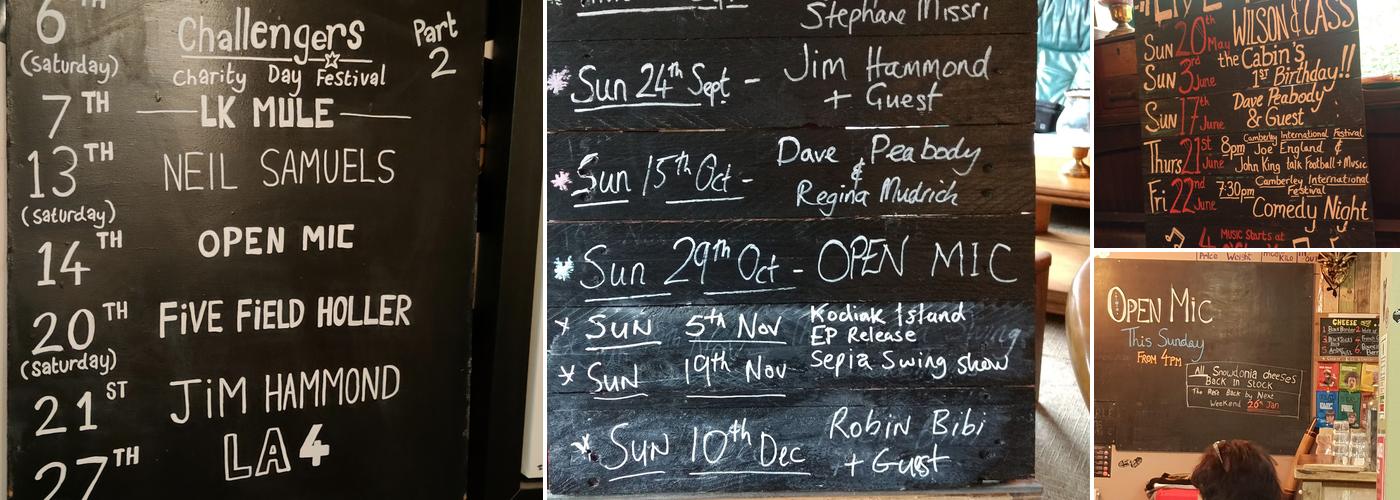 6TH
(Saturday)
Challengers
Charity Day Festival
Part
2
7TH
LK MULE
13TH
(Saturday)
NEIL SAMUELS
14TH
OPEN MIC
20TH
(Saturday)
FiVE FiELD HOLLER
21ST
JiM HAMMOND
27TH
LA4
Stephane Missri
Sun 24th Sept - Jim Hammond
+ Guest
Sun 15th Oct - Dave Peabody
&
Regina Mudrich
Sun 29th Oct - OPEN MIC
SUN 5th Nov Kodiak Island
EP Release
SUN 19th Nov Sepia Swing show
SUN 10th Dec Robin Bibi
+ Guest
Sun 20th May WILSON & CASS
Sun 3rd June the Cabin's
1st Birthday!!
Sun 17th June Dave Peabody
& Guest
Thurs 21st June 8pm Camberley International Festival
Joe England &
John King talk Football + Music
Fri 22nd June 7:30pm Camberley International
Festival
Comedy Night
MUSIC Starts at
4
Price Weight
OPEN MiC
This Sunday
FROM 4PM
All Snowdonia cheeses
Back In Stock
The Rest Back by Next
Weekend 26th Jan
CHEESE